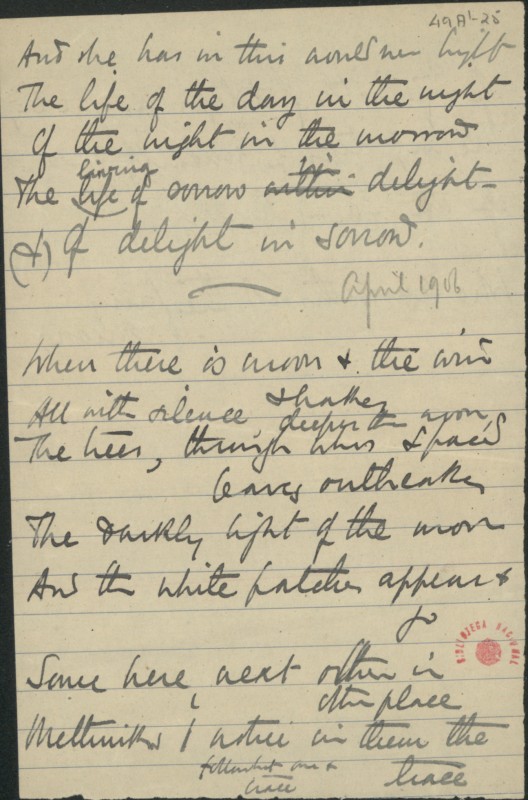 49A1-25
And she has in this world new light
The life of the day in the night
Of the night in the morrow
living
The life of sorrow within in delight –
(&) Of delight in sorrow.
April 1906
When there is moon & the
All with silence, shakes
deeper than
The trees, through whose spaced
leaves outbreaks
The darkly light of the moon
And the white patches appear &
go
Some here, next other in
other place
I notice in them the
trace
one &
trace
BIBLIOTECA NACIONAL